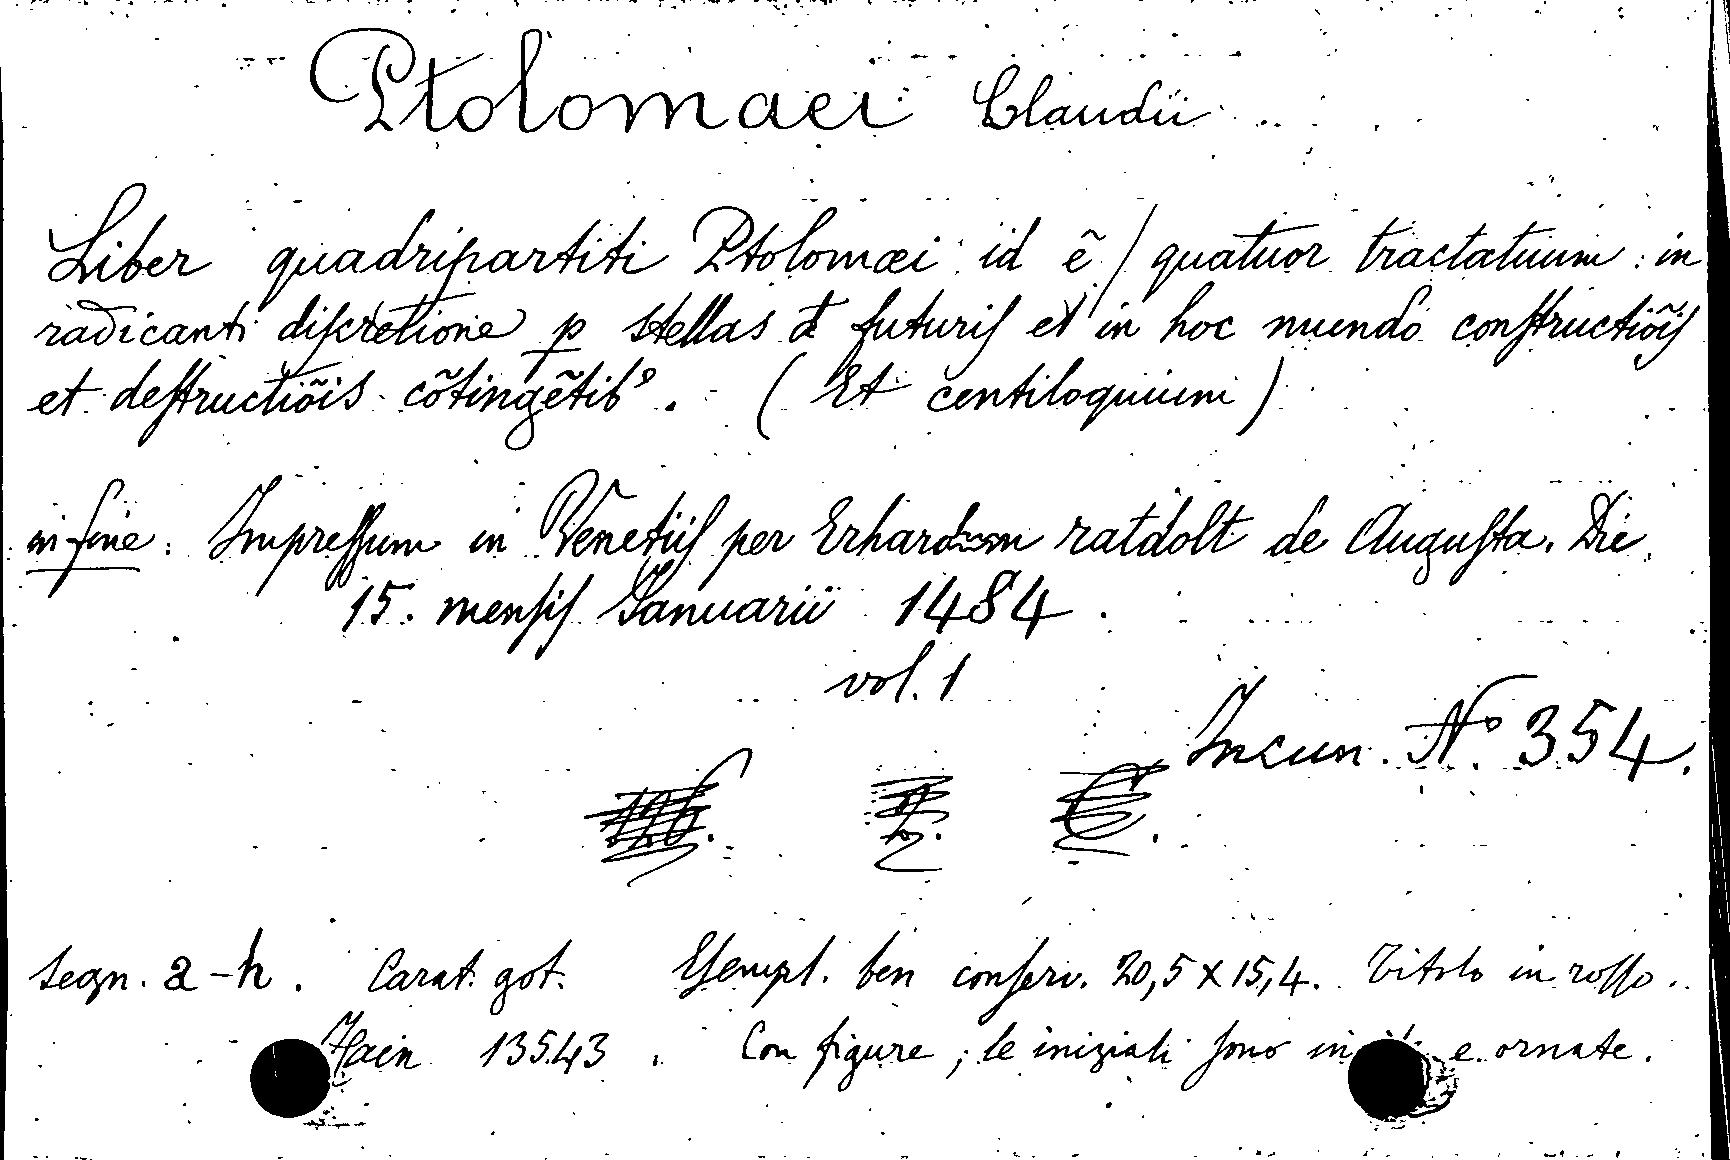 Ptolomaei Claudii
Liber quadripartiti Ptolomæi id ẽ / quatuor tractatuum: in
radicanti diſcretione p stellas đ futuriſ et in hoc mundo conſtructiõiſ
et deſtructiõis cõtingẽtib⁹. (Et centiloquium)
in fine: Impreſſum in Venetiiſ per Erhardum ratdolt de Auguſta. Die
15. menſiſ Januarii 1484.
vol. 1
Incun. Nº 354.
segn. a-h. Carat. got. Eſempl. ben conſerv. 20,5 x 15,4. Titolo in roſſo.
Hain 13543. Con figure; le iniziali ſono e ornate.